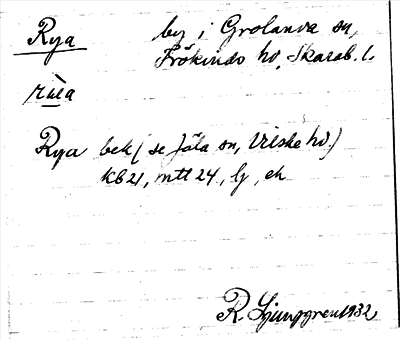 Rya by i Grolanda sn,
Frökinds hd, Skarab. l.
rùa
Rya bek (se Jäla sn, Vilske hd.)
KB 21, mtt 24, lj, ek
R. Ljunggren 1932